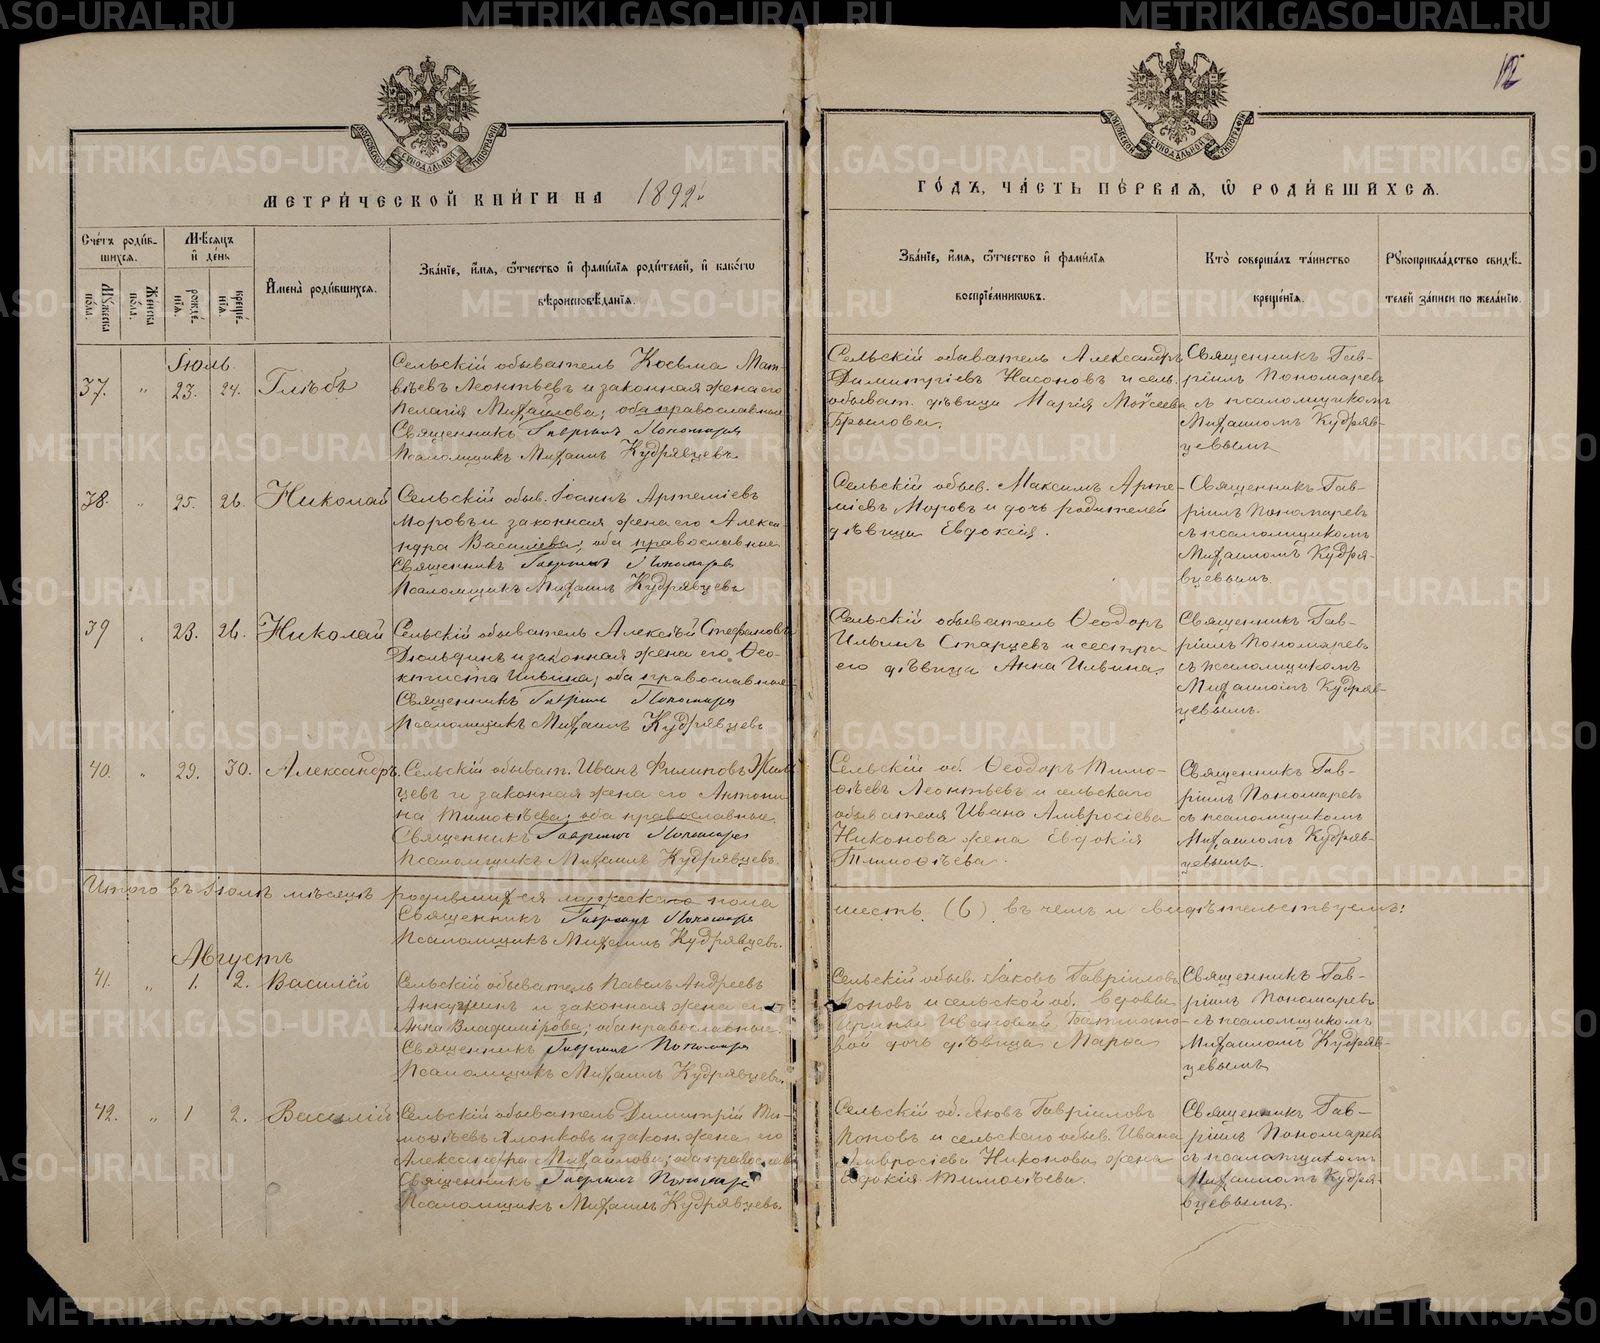 12
МЕТРИ́ЧЕСКОЙ КНИ́ГИ НА 1892
ГО́ДЪ, ЧА́СТЬ ПЕ́РВАЯ, Ѡ РОДИ́ВШИХСЯ.
Сче́тъ роди́в-
шихся.
Му́жеска по́ла.
Же́нска по́ла.
Мѣ́сяцъ и де́нь
рожде́нїя.
креще́нїя.
И҆мена̀ роди́вшихся.
Зва́нїе, и҆́мя, ѻ҆́тчество и҆ фами́лїя роди́телей, и҆ како́гѡ
вѣроисповѣ́данїя.
Зва́нїе, и҆́мя, ѻ҆́тчество и҆ фами́лїя
воспрїе́мниковъ.
Кто̀ соверша́лъ та́инство
креще́нїя.
Рꙋкоприкла́дство свидѣ́-
телей за́писи по жела́нїю.
Іюль
37. " 23. 24. Глѣбъ
Сельскій обыватель Косьма Мат-
вѣевъ Леонтьевъ и законная жена его
Пелагія Михайлова; оба православные
Священникъ Гавріилъ Пономарев
Псаломщикъ Михаилъ Кудрявцевъ.
Сельскій обыватель Александръ
Димитріевъ Насоновъ и сель.
обыват. дѣвица Марія Моѵсеева
Брылова.
Священникъ Гав-
ріилъ Пономаревъ
съ псаломщикомъ
Михаиломъ Кудряв-
цевымъ
38. " 25. 26. Николай
Сельскій обыв. Іоаннъ Артеміевъ
Моровъ и законная жена его Алекса-
ндра Василіева; оба православные
Священникъ Гавріилъ Пономарев
Псаломщикъ Михаилъ Кудрявцевъ
Сельскій обыв. Максимъ Арте-
міевъ Моровъ и дочь родителей
дѣвица Евдокія.
Священникъ Гав-
ріилъ Пономаревъ
съ псаломщикомъ
Михаиломъ Кудря-
вцевымъ.
39 " 23. 26. Николай
Сельскій обыватель Алексѣй Стефановъ
Дюльдинъ и законная жена его Ѳео-
ктиста Ильина; оба православные
Священникъ Гавріилъ Пономарев
Псаломщикъ Михаилъ Кудрявцевъ
Сельскій обыватель Ѳеодоръ
Ильинъ Старцевъ и сестра
его дѣвица Анна Ильина.
Священникъ Гав-
ріилъ Пономаревъ
съ псаломщикомъ
Михаиломъ Кудряв-
цевымъ.
40. " 29. 30. Александръ.
Сельскій обыват. Иванъ Филиповъ
цевъ и законная жена его Антони-
на Тимоѳѣева; оба православные.
Священникъ Гавріилъ Пономарев
Псаломщикъ Михаилъ Кудрявцевъ.
Сельскій об. Ѳеодоръ Тимо-
ѳѣевъ Леонтьевъ и сельскаго
обывателя Ивана Амвросіева
Никонова жена Евдокія
Тимоѳѣева.
Священникъ Гав-
ріилъ Пономаревъ
съ псаломщикомъ
Михаиломъ Кудряв-
цевымъ.
Итого въ Іюлѣ мѣсяцѣ родившихся мужескаго пола
шесть (6), въ чемъ и свидѣтельствуемъ:
Священникъ Гавріилъ Пономарев
Псаломщикъ Михаилъ Кудрявцевъ.
Августъ
41. " 1. 2. Василій
Сельскій обыватель Павелъ Андреевъ
и законная жена его
Анна Владимірова; оба православные.
Священникъ Гавріилъ Пономарев
Псаломщикъ Михаилъ Кудрявцевъ.
Сельскій обыв. Іаковъ Гавріиловъ
Поповъ и сельской об. вдовы
Ирины Ивановой
вой дочь дѣвица Марѳа
Священникъ Гав-
ріилъ Пономаревъ
съ псаломщикомъ
Михаиломъ Кудряв-
цевымъ
42. " 1 2. Василій
Сельскій обыватель Димитрій Ти-
моѳѣевъ Хлопковъ и закон. жена его
Александра Михайлова; оба православ.
Священникъ Гавріилъ Пономарев
Псаломщикъ Михаилъ Кудрявцевъ.
Сельскій об. Яковъ Гавріиловъ
Поповъ и сельскаго обыв. Ивана
Амвросіева Никонова жена
Евдокія Тимоѳѣева.
Священникъ Гав-
ріилъ Пономаревъ
съ псаломщикомъ
Михаиломъ Кудря-
вцевымъ.
METRIKI.GASO-URAL.RU